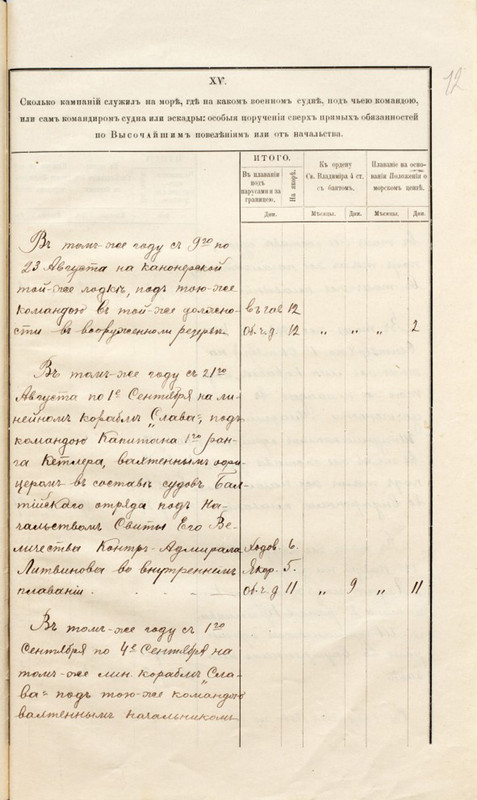 12
XV.
Сколько кампаній служилъ на морѣ, гдѣ на какомъ военномъ суднѣ, подъ чьею командою,
или самъ командиромъ судна или эскадры: особыя порученія сверхъ прямыхъ обязанностей
по Высочайшимъ повелѣніямъ или отъ начальства.
ИТОГО.
Въ плаваніи
подъ
парусами и за
границею.
На дворѣ.
Къ ордену
Св. Владиміра 4 ст.
съ бантомъ.
Плаваніе на осно-
ваніи Положенія о
морскомъ цензѣ.
Дни. Мѣсяцы. Дни. Мѣсяцы. Дни.
Въ томъ-же году съ 9го по
23 Августа на канонерской
той-же лодкѣ, подъ тою-же
командою въ той-же должно- 12
сти въ вооруженномъ резервѣ. Об. ч. д. 12 „ „ „ 2
Въ томъ-же году съ 21го
Августа по 1е Сентября на ли-
нейномъ кораблѣ „Слава“, подъ
командою Капитана 1го ран-
га Кетлера, вахтеннымъ офи-
церомъ въ составѣ судовъ Бал-
тійскаго отряда подъ На-
чальствомъ Свиты Его Ве-
личества Контръ-Адмирала Ходов. 6.
Литвинова во внутреннемъ Якор. 5.
плаваніи. Об. ч. д. 11 „ 9 „ 11
Въ томъ-же году съ 1го
Сентября по 4е Сентября на
томъ-же лин. кораблѣ „Сла-
ва“ подъ тою-же командою
вахтеннымъ начальникомъ